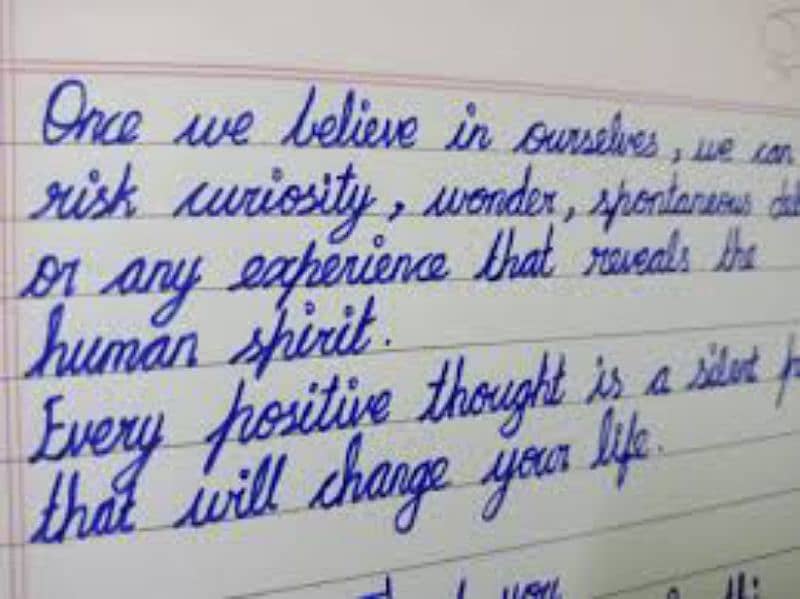 Once we believe in ourselves, we can
risk curiosity, wonder, spontaneous
or any experience that reveals the
human spirit.
Every positive thought is a silent
that will change your life.
you